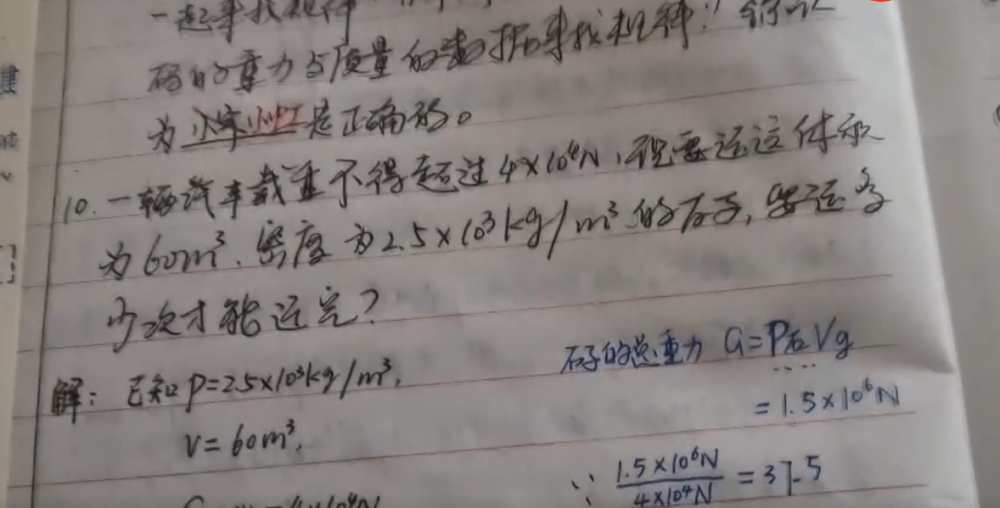 一起来找规律
码的重力与质量的数据来找规律！你认
为小华小红是正确的。
10.一辆汽车载重不得超过4×10⁴N,现要运送体积
为60m³、密度为2.5×10³kg/m³的石子,需运多
少次才能运完?
解: 已知ρ=2.5×10³kg/m³,
V=60m³,
石子的总重力 G=ρ石Vg
=1.5×10⁶N
∵ 1.5×10⁶N/4×10⁴N =37.5